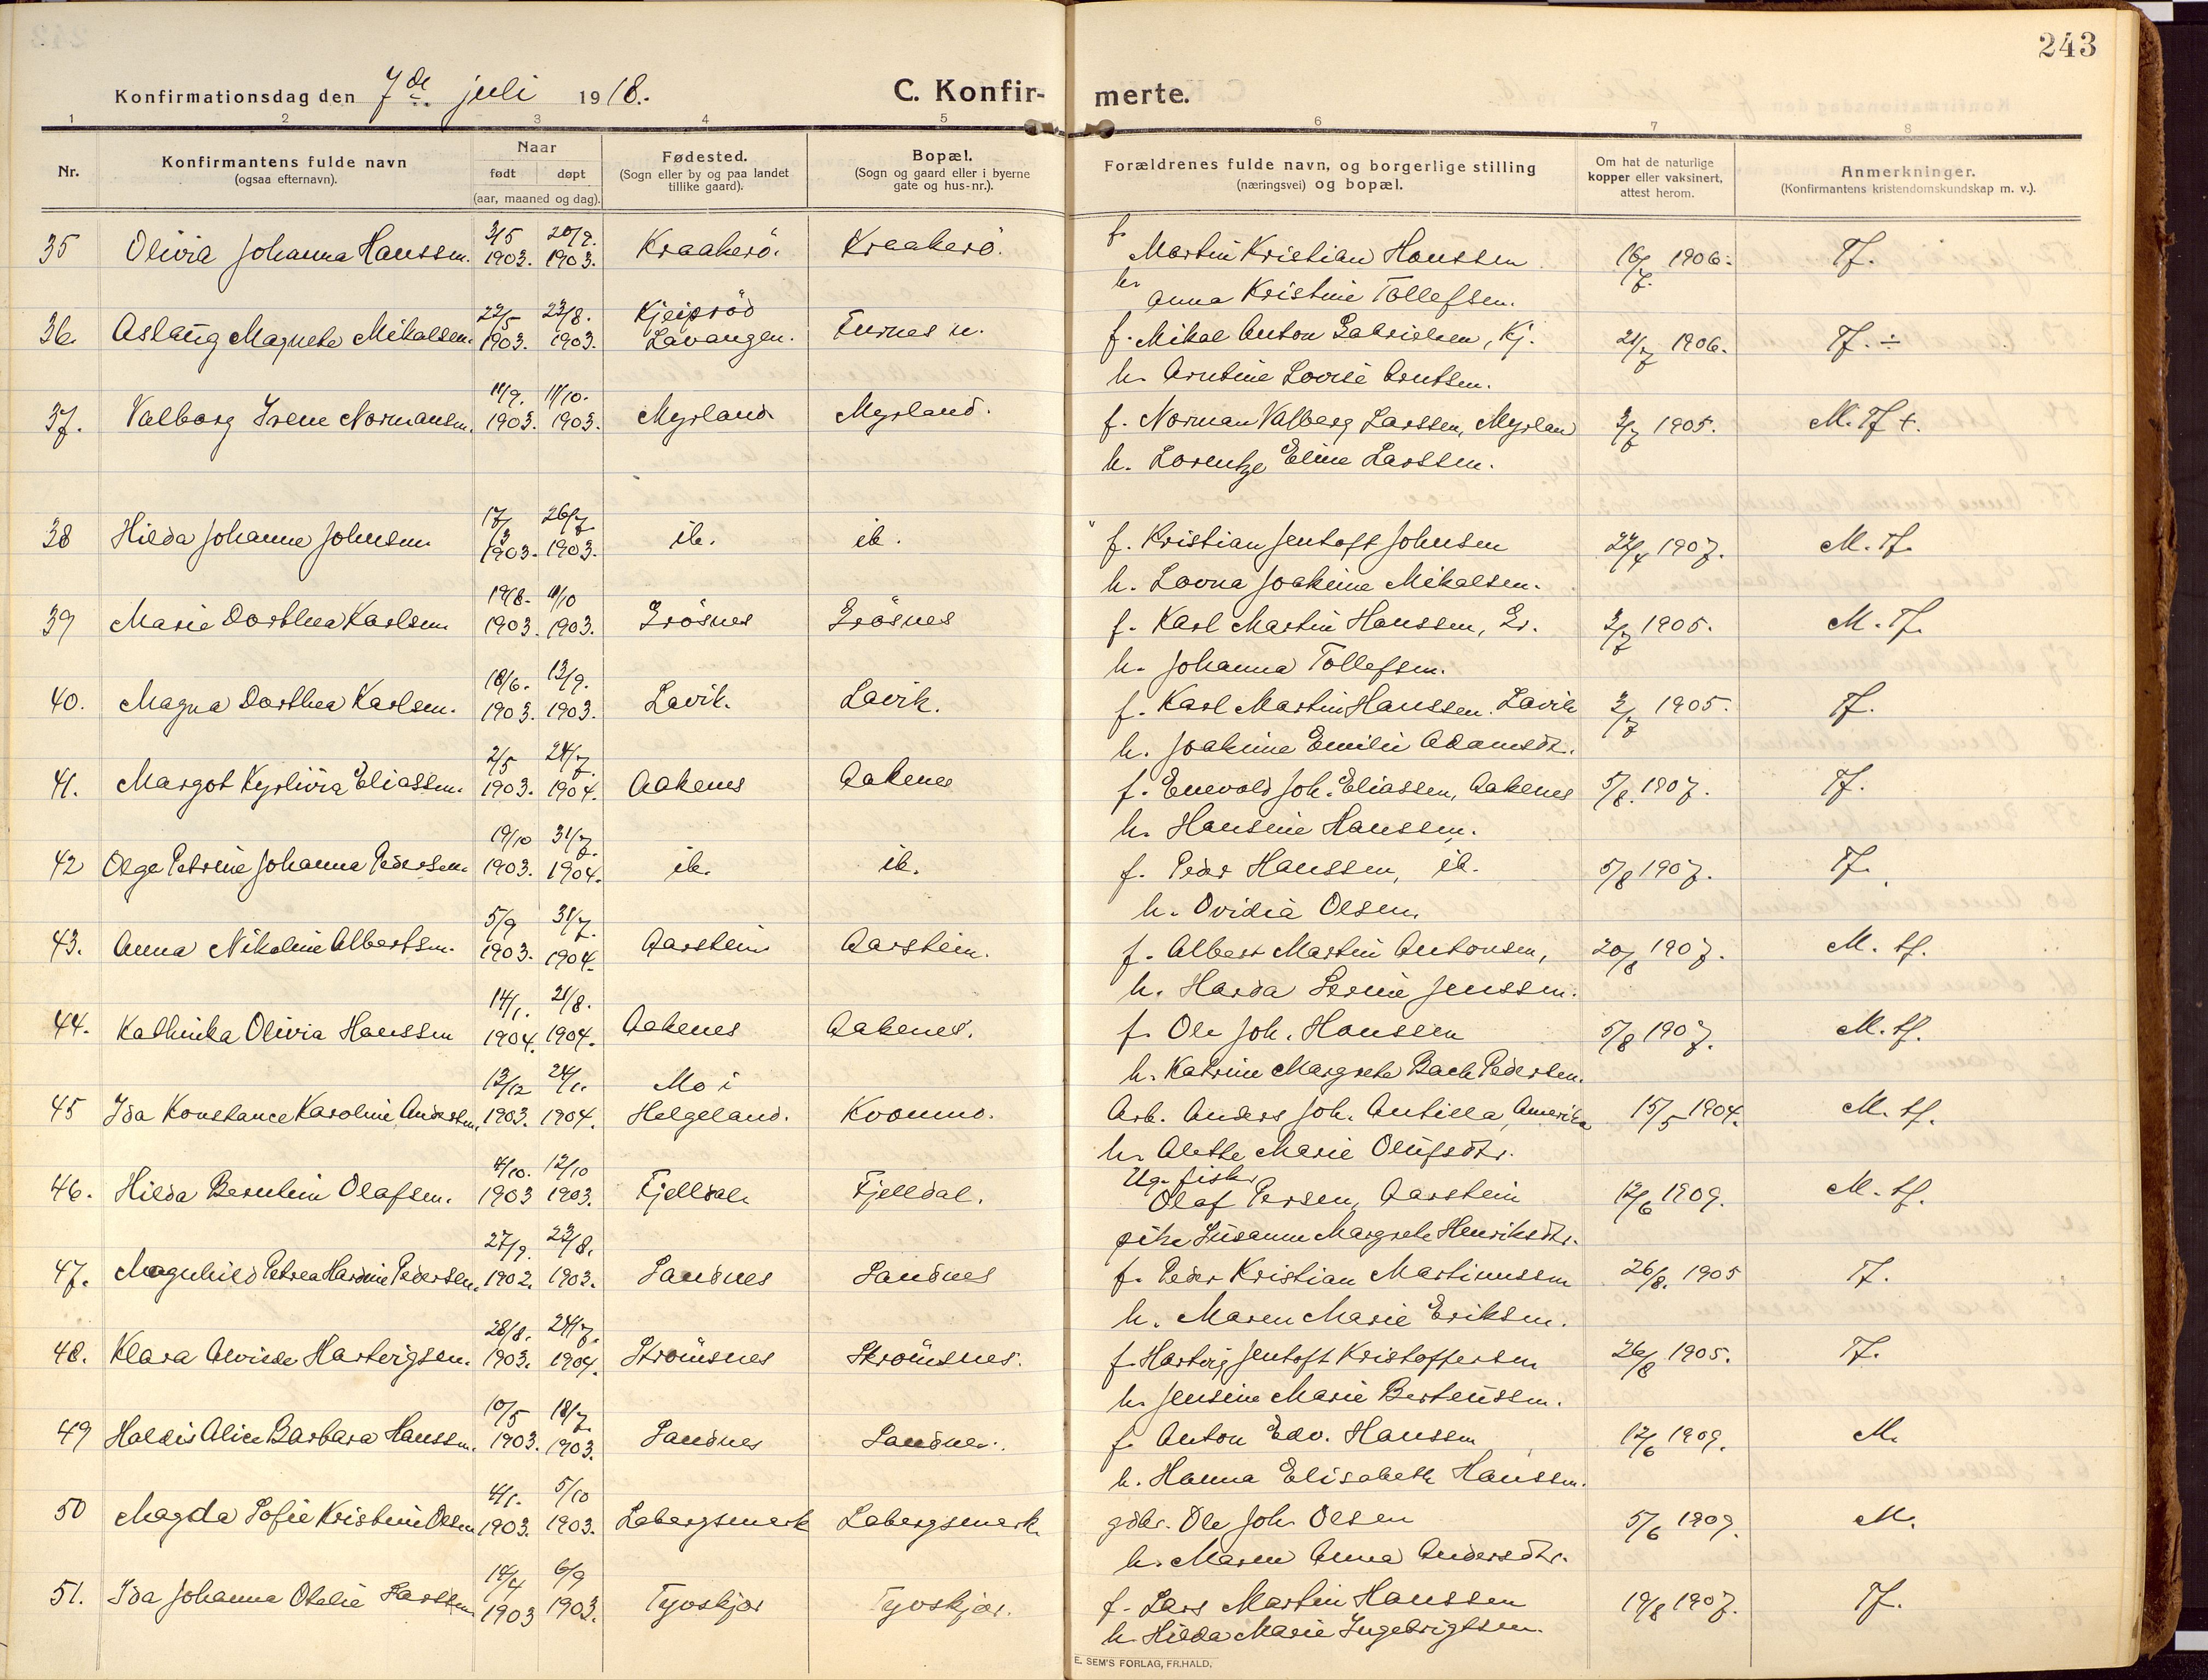 243
Konfirmationsdag den 7de juli 1918.
C. Konfir-merte.
1 2 3 4 5 6 7 8
Nr.
Konfirmantens fulde navn
(ogsaa efternavn).
Naar
født døpt
(aar, maaned og dag).
Fødested.
(Sogn eller by og paa landet
tillike gaard).
Bopæl.
(Sogn og gaard eller i byerne
gate og hus-nr.).
Forældrenes fulde navn, og borgerlige stilling
(næringsvei) og bopæl.
Om hat de naturlige
kopper eller vaksinert,
attest herom.
Anmerkninger.
(Konfirmantens kristendomskundskap m. v.).
35 Olivia Johanna Hanssen. 3/5 1903. 20/9. 1903. Kraakerö. Kraakerö. f. Martin Kristian Hanssen 16/7. 1906. Tf.
h. Anna Kristine Tollefsen.
36. Aslaug Magnete Mikalsen. 22/5 1903. 23/8. 1903. Kjeipröd Lavangen. Furnes n. f. Mikal Anton Gabrielsen, Kj. 21/7 1906. Tf. ÷
h. Arntine Lovise Arntsen.
37. Valborg Irene Normansen. 11/9. 1903. 11/10. 1903. Myrland Myrland. f. Norman Valberg Larssen, Myrlan 3/7 1905. M. Tf +.
h. Lorentze Eline Larssen.
38 Hilda Johanne Johnsen. 17/3 1903. 26/7. 1903. ib. ib. f. Kristian Jentoft Johnsen 22/4 1907. M. Tf.
h. Lovna Joakime Mikalsen.
39 Marie Dorthea Karlsen 19/8. 1903. 11/10 1903. Grösnes Grösnes f. Karl Martin Hanssen, Gr. 3/7 1905. M. Tf.
h. Johanna Tollefsen.
40. Magna Dorthea Karlsen. 18/6. 1903. 13/9. 1903. Lavik. Lavik. f. Karl Martin Hanssen. Lavik 3/7 1905. Tf.
h. Joakime Emilie Adamsdr.
41. Margot Kyrlivia Eliassen. 2/5 1903. 24/7. 1904. Aakenes Aakenes f. Enevold Joh. Eliassen, Aakenes 5/8. 1907. Tf.
h. Hansine Hanssen.
42 Olga Petrine Johanna Pedersen. 19/10 1903. 31/7. 1904. ib. ib. f. Peder Hanssen, ib. 5/8 1907. Tf.
h. Ovidia Olsen.
43. Anna Nikoline Albertsen. 5/9 1903. 31/7. 1904. Aarstein Aarstein. f. Albert Martin Antonsen, 20/8 1907. M. tf.
h. Harda Serine Jenssen.
44. Kathinka Olivia Hanssen 14/1. 1904. 21/8. 1904. Aakenes Aakenes. f. Ole Joh. Hanssen 5/8 1907. M. tf.
h. Katrine Margrete Bach Pedersen.
45 Ida Konstance Karoline Andersen. 13/12 1903. 24/1. 1904. Mo i Helgeland. Kvommo. Arb. Anders Joh. Antilla, Amerika 15/5 1904. M. tf.
h. Alette Marie Olufsdtr.
46. Hilda Berntine Olafsen. 4/10. 1903 12/10 1903. Fjelldal Fjelldal. Ug. fisker Olaf Persen, Aarstein 12/6 1909. M. tf.
pike Susanne Margrete Henriksdtr.
47. Magnhild Petrea Hardine Pedersen. 27/9. 1902. 23/8. 1903. Sandnes Sandnes f. Peder Kristian Martinussen 26/8. 1905 Tf.
h. Maren Marie Eriksen.
48. Klara Alvilde Hartvigsen. 28/8. 1903. 24/7. 1904. Strömsnes Strömsnes. f. Hartvig Jentoft Kristoffersen 26/8 1905. Tf.
h. Jensine Marie Berteussen.
49 Haldis Alice Barbara Hanssen. 10/5 1903. 18/7 1903. Sandnes Sandnes. f. Anton Edv. Hanssen 12/6 1909. M.
h. Hanna Elisabeth Hanssen.
50 Magda Sofie Kristine Olsen 4/1. 1903. 5/10 1903. Labergsmark Labergsmark gdbr. Ole Joh. Olsen 5/6 1909. M.
h. Maren Anna Andersdtr.
51. Ida Johanna Otelie Larssen 14/4 1903 6/9 1903. Tyvskjær Tyvskjær. f. Lars Martin Hanssen 19/8 1907. Tf.
h. Hilda Marie Ingebrigtsen.
E. SEM'S FORLAG, FR.HALD.